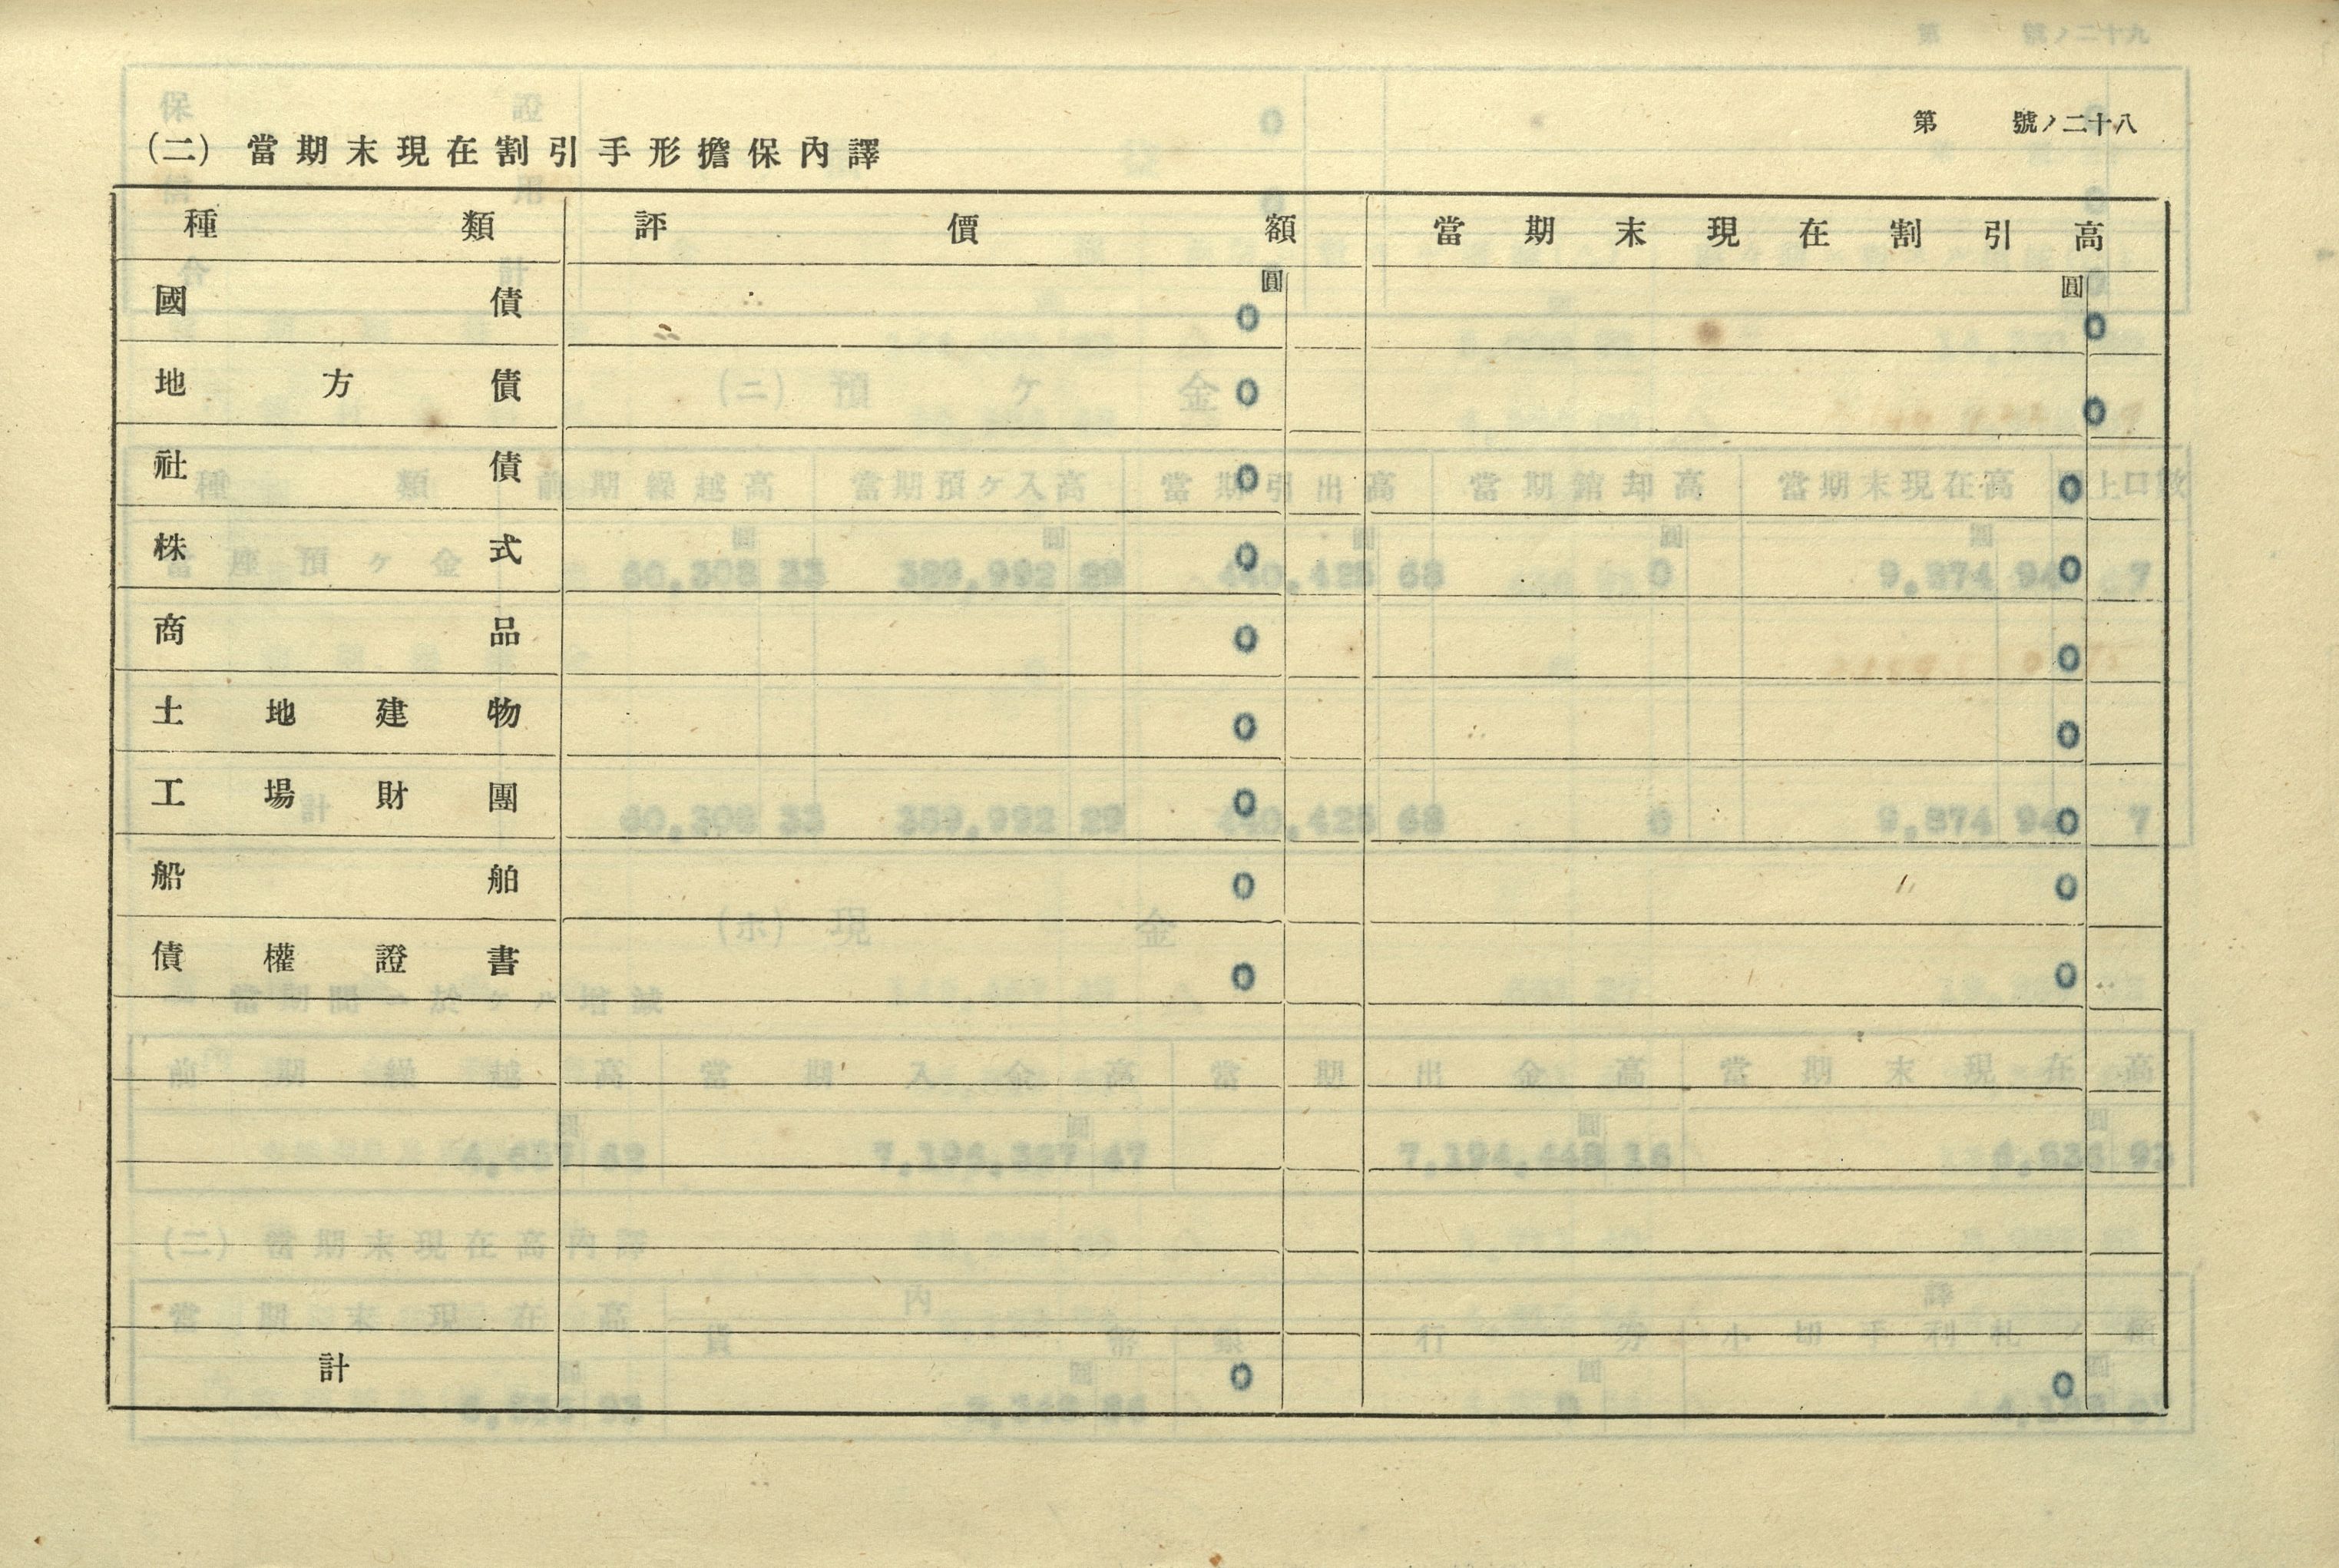 第 號ノ二十八
(二) 當期末現在割引手形擔保內譯
種類 評價額 當期末現在割引高
圓 圓
國債 0 0
地方債 0 0
社債 0 0
株式 0 0
商品 0 0
土地建物 0 0
工場財團 0 0
船舶 0 0
債權證書 0 0
計 0 0